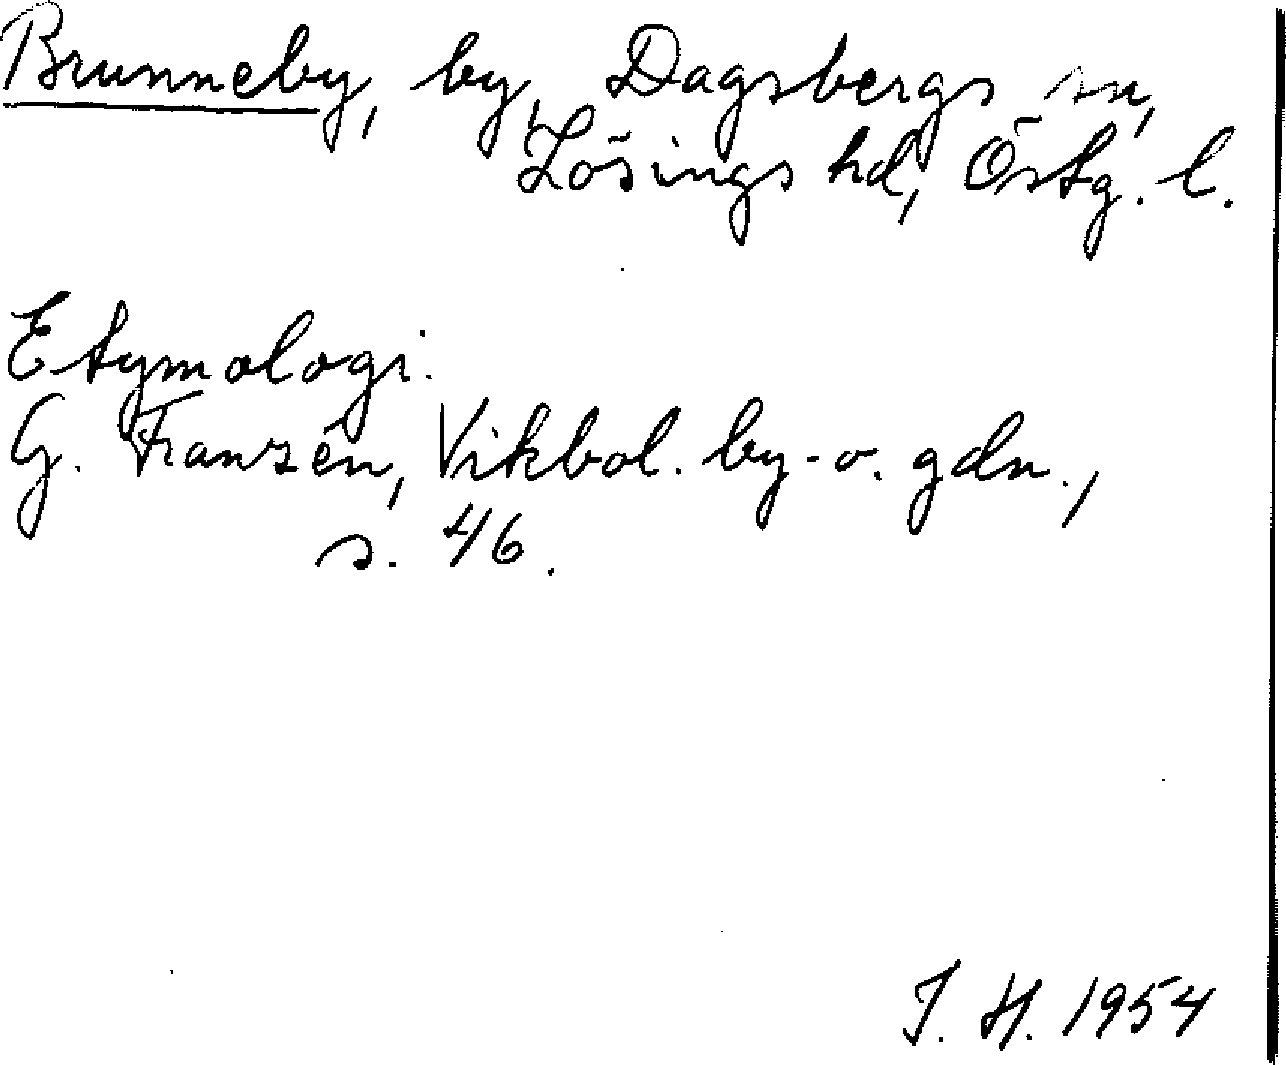 Brunneby, by, Dagsbergs sn,
Lösings hd, Östg. l.
Etymologi.
G. Franzén, Vikbol. by- o. gdn.,
s. 46.
J. H. 1954